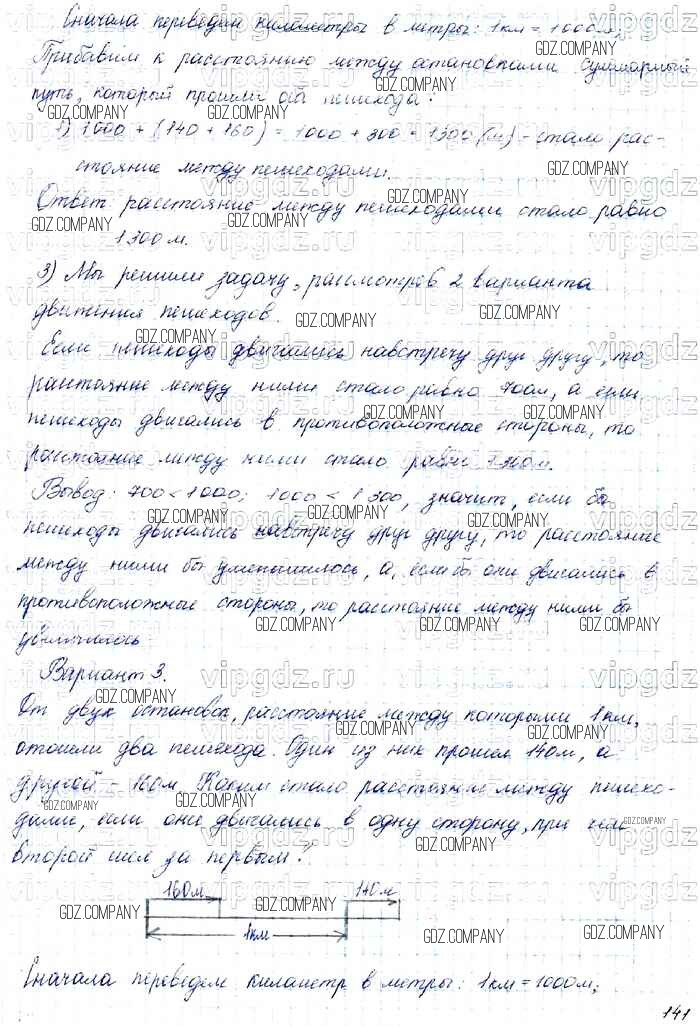 Сначала переведем километры в метры: 1км = 1000м;
Прибавим к расстоянию между остановками суммарный
путь, который прошли оба пешехода:
1) 1000 + (140 + 160) = 1000 + 300 = 1300 (м) - стало рас-
стояние между пешеходами.
Ответ: расстояние между пешеходами стало равно
1300 м.
3) Мы решили задачу, рассмотрев 2 варианта
движения пешеходов.
Если пешеходы двигались навстречу друг другу, то
расстояние между ними стало равно 700м, а если
пешеходы двигались в противоположные стороны, то
расстояние между ними стало равно 1300м.
Вывод: 700 < 1000; 1000 < 1300, значит, если бы
пешеходы двигались навстречу друг другу, то расстояние
между ними бы уменьшилось, а, если бы они двигались в
противоположные стороны, то расстояние между ними бы
увеличилось.
Вариант 3.
От двух остановок, расстояние между которыми 1км,
отошли два пешехода. Один из них прошел 140м, а
другой - 160м. Каким стало расстояние между пешехо-
дами, если они двигались в одну сторону, при чем
второй шел за первым?
160м 140м
1км
Сначала переведем километр в метры: 1км = 1000м;
141
GDZ.COMPANY
vipgdz.ru